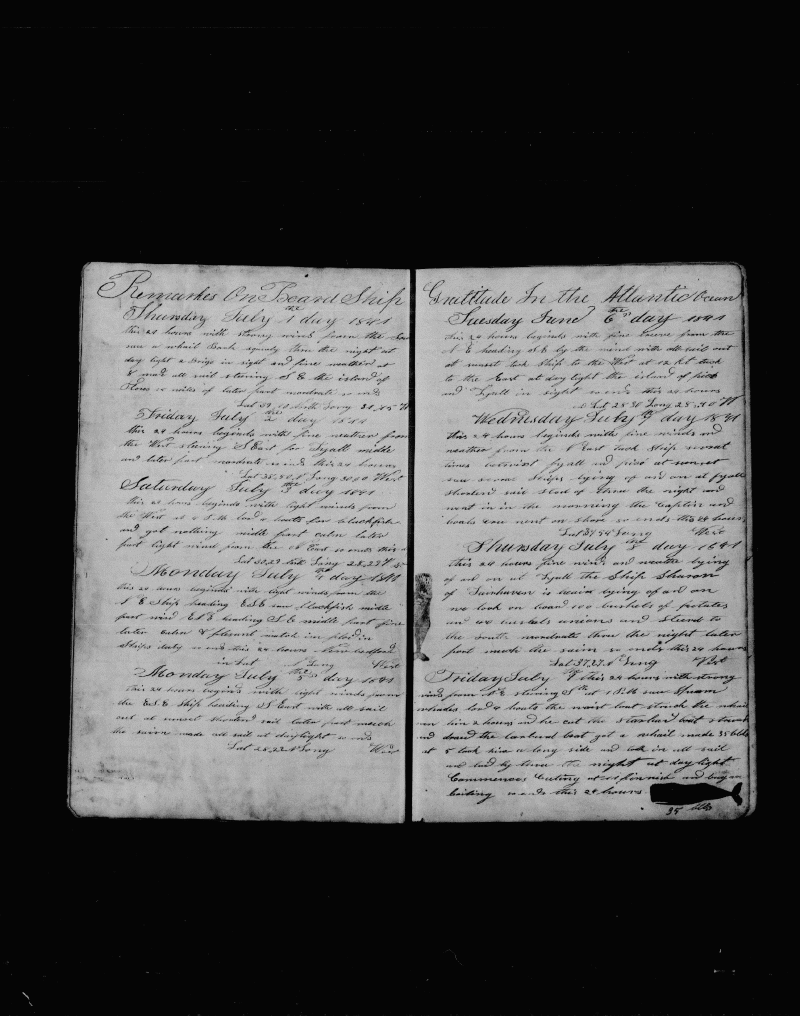 Remarks On Board Ship
Thursday July 1 the day 1841
this 24 hours with strong wind from the
saw a whail Bark squaly thru the night at
day light a Brigg in sight and fine weather at
8 made all sail stering S E the island of
Flores miles of later part modrate so ends
Lat 39,10 North Long 31,45 W
Friday July 2 the day 1841
this 24 hours beginds with fine weather from
the West stering S East for Fyall midle
and later part modrate so ends this 24 hours
Lat 38,40 N Long 30 00 West
Saturday July 3 the day 1841
this 24 hours beginds with light winds from
the West at 4 P.M. lord 4 boats for blackfish
and got nothing midle part calm later
part light wind from the N East so ends this
Lat 38,29 Long 28,29 W
Monday July 4 the day 1841
this 24 hours beginds with light winds from the
N E Ship heading E S E saw blackfish midle
part wind heading S E midle part fine
later calm & plesant
Ships duty so ends this 24 hours
in Lat Long West
Monday July 5 the day 1841
this 24 hours begins with light winds from
the E S E Ship heading S East with all sail
out at sunset shortend sail later part much
the saim made all sail at daylight so ends
Lat 28,22 N Long West
Gratitude In the Atlantic Ocean
Tuesday June 6 the day 1841
this 24 hours beginds with fine breese from the
N E heading S E by the wind with all sail out
at sunset tack Ship to the West at 12 tack
to the East at day light the island of pico
and Fyall in sight so ends this 24 hours
Lat 28 38 Long 28,40 W
Wednesday July 7 day 1841
this 24 hours beginds with fine winds and
weather from the N East tack Ship sevral
times betwixt fyall and pico at sunset
saw some Ships lying of and on at fyall
shortend sail stood of threw the night and
went in in the morning the Captin and
boats crue went on shore so ends this 24 hours
Lat 37 54 Long West
Thursday July 8 the day 1841
this 24 hours fine wind and weather lying
of and on at Fyall the Ship Sharon
of Fairhaven is lying of and on
we took on board 100 bushels of potatos
and bushels unions and Sterd to
the South modrate threw the night later
part much the saim so ends this 24 hours
Lat 37,27 N Long West
Friday July 9 this 24 hours with strong
winds from N E stering S at 1 P.M. saw Spurm
whailes lord 4 boats the waist boat struck the whail
run him 2 hours and he cut the Starbord boat struck
and drawd the larbord boat got a whail made 35 bbls
at 8 took him a long side and took in all sail
and laid by threw the night at day light
Commences Cuting at finnish and begun
boiling so ends this 24 hours
35 bbls